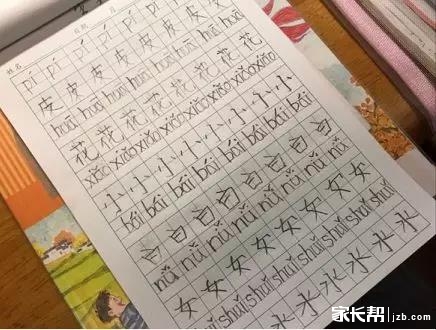 姓名 日期
pí pí pí pí pí pí pí pí
皮 皮 皮 皮 皮 皮 皮 皮
huā huā huā huā huā huā huā huā
花 花 花 花 花 花 花 花
xiǎo xiǎo xiǎo xiǎo xiǎo xiǎo xiǎo xiǎo
小 小 小 小 小 小 小 小
bái bái bái bái bái bái bái bái
白 白 白 白 白 白 白 白
nǚ nǚ nǚ nǚ nǚ nǚ nǚ nǚ
女 女 女 女 女 女 女 女
shuǐ shuǐ shuǐ shuǐ shuǐ shuǐ shuǐ shuǐ
水 水 水 水 水 水
家长帮 jzb.com